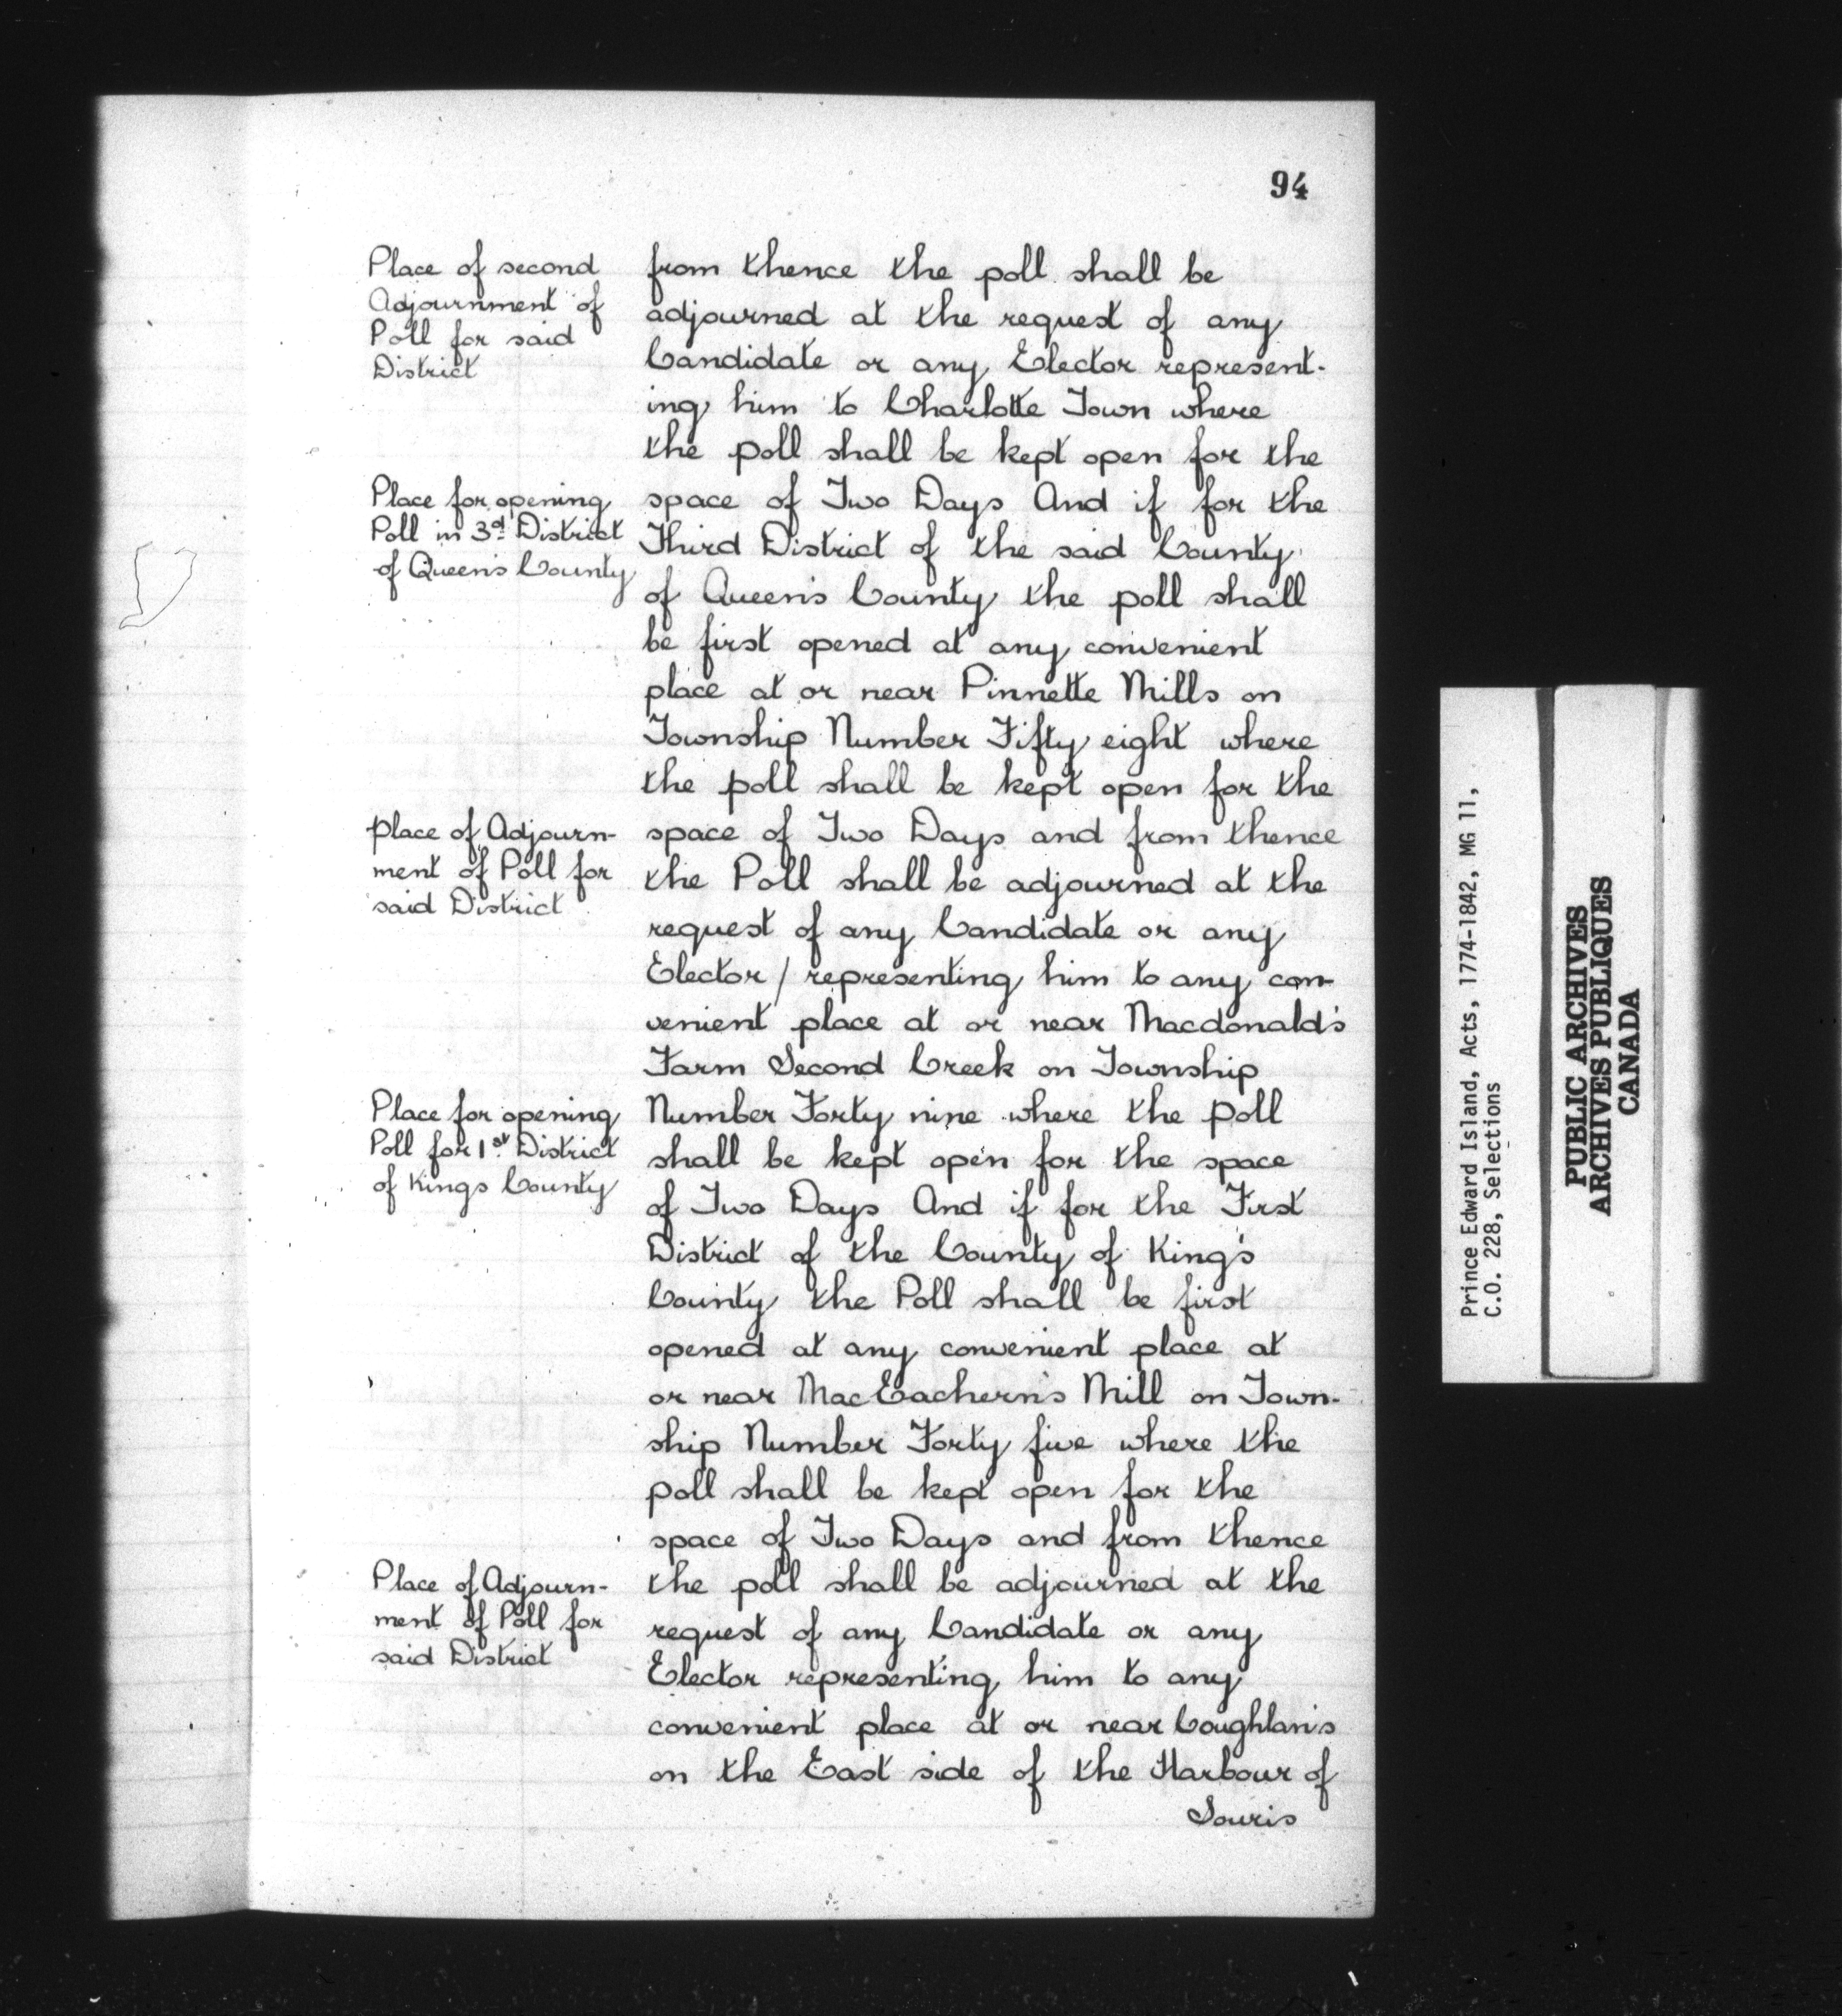 94
Place of second
Adjournment of
Poll for said
District
from thence the poll shall be
adjourned at the request of any
Candidate or any Elector represent-
ing him to Charlotte Town where
the poll shall be kept open for the
Place for opening
Poll in 3d District
of Queen's County
space of Two Days And if for the
Third District of the said County
of Queen's County the poll shall
be first opened at any convenient
place at or near Pinnette Mills on
Township Number Fifty eight where
the poll shall be kept open for the
place of Adjourn-
ment of Poll for
said District
space of Two Days and from thence
the Poll shall be adjourned at the
request of any Candidate or any
Elector / representing him to any con-
venient place at or near Macdonald's
Farm Second Creek on Township
Place for opening
Poll for 1st District
of Kings County
Number Forty nine where the poll
shall be kept open for the space
of Two Days And if for the First
District of the County of King's
County the Poll shall be first
opened at any convenient place at
or near MacEachern's Mill on Town-
ship Number Forty five where the
poll shall be kept open for the
space of Two Days and from thence
Place of Adjourn-
ment of Poll for
said District
the poll shall be adjourned at the
request of any Candidate or any
Elector representing him to any
convenient place at or near Coughlan's
on the East side of the Harbour of
Souris
Prince Edward Island, Acts, 1774-1842, MG 11,
C.O. 228, Selections
PUBLIC ARCHIVES
ARCHIVES PUBLIQUES
CANADA